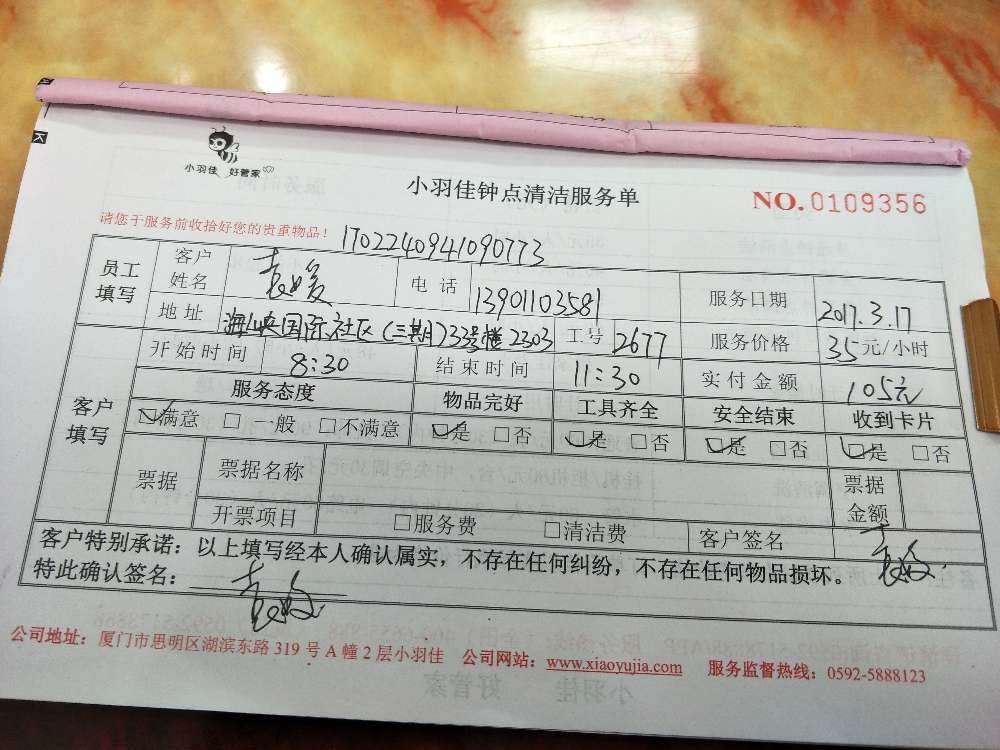 小羽佳 好管家
小羽佳钟点清洁服务单
NO.0109356
请您于服务前收拾好您的贵重物品！
1702240941090773
员工填写 客户姓名 袁媛 电话 13901103581 服务日期 2017.3.17
地址 海峡国际社区(三期)33号楼2303 工号 2677 服务价格 35元/小时
开始时间 8:30 结束时间 11:30 实付金额 105元
客户填写 服务态度 物品完好 工具齐全 安全结束 收到卡片
☑满意 □一般 □不满意 ☑是 □否 ☑是 □否 ☑是 □否 ☑是 □否
票据 票据名称 票据金额
开票项目 □服务费 □清洁费 客户签名 袁媛
客户特别承诺：以上填写经本人确认属实，不存在任何纠纷，不存在任何物品损坏。
特此确认签名：袁媛
公司地址：厦门市思明区湖滨东路 319 号 A 幢 2 层小羽佳 公司网站：www.xiaoyujia.com 服务监督热线：0592-5888123